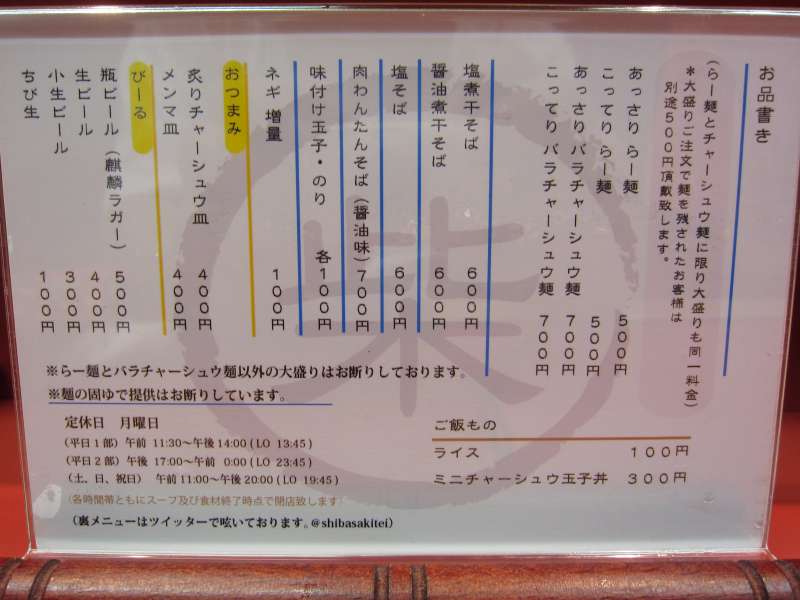 お品書き
(らー麺とチャーシュウ麺に限り大盛りも同一料金)
*大盛りご注文で麺を残されたお客様は
別途500円頂戴致します。
あっさり らー麺 500円
こってり らー麺 500円
あっさり バラチャーシュウ麺 700円
こってり バラチャーシュウ麺 700円
塩煮干そば 600円
醤油煮干そば 600円
塩そば 600円
肉わんたんそば(醤油味)700円
味付け玉子・のり 各100円
ネギ 増量 100円
おつまみ
炙りチャーシュウ皿 400円
メンマ皿 400円
びーる
瓶ビール(麒麟ラガー) 500円
生ビール 400円
小生ビール 300円
ちび生 100円
※らー麺とバラチャーシュウ麺以外の大盛りはお断りしております。
※麺の固ゆで提供はお断りしています。
定休日 月曜日
(平日1部) 午前 11:30〜午後14:00 (LO 13:45)
(平日2部) 午後 17:00〜午前 0:00 (LO 23:45)
(土、日、祝日) 午前11:00〜午後20:00 (LO 19:45)
(各時間帯ともにスープ及び食材終了時点で閉店致します)
(裏メニューはツイッターで呟いております。@shibasakitei)
ご飯もの
ライス 100円
ミニチャーシュウ玉子丼 300円
柴